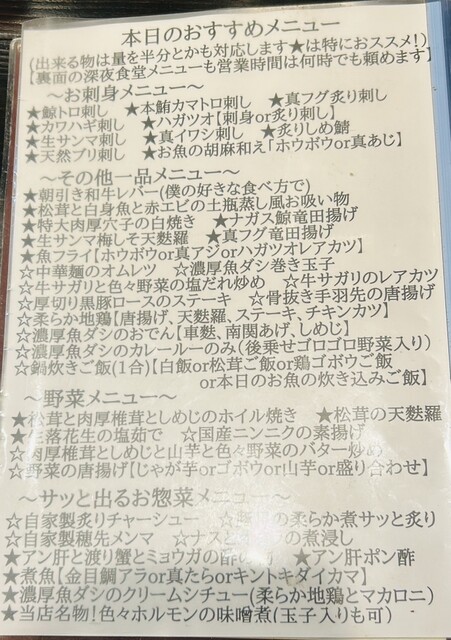 本日のおすすめメニュー
(出来る物は量を半分とかも対応します★は特におススメ!)
【裏面の深夜食堂メニューも営業時間は何時でも頼めます】
～お刺身メニュー～
★鯨トロ刺し ★本鮪カマトロ刺し ★真フグ炙り刺し
★カワハギ刺し ★ハガツオ【刺身or炙り刺し】
★生サンマ刺し ★真イワシ刺し ★炙りしめ鯖
★天然ブリ刺し ★お魚の胡麻和え「ホウボウor真あじ」
～その他一品メニュー～
★朝引き和牛レバー(僕の好きな食べ方で)
★松茸と白身魚と赤エビの土瓶蒸し風お吸い物
★特大肉厚穴子の白焼き ★ナガス鯨竜田揚げ
★生サンマ梅しそ天麩羅 ★真フグ竜田揚げ
★魚フライ【ホウボウor真アジorハガツオレアカツ】
☆中華麺のオムレツ ☆濃厚魚ダシ巻き玉子
☆牛サガリと色々野菜の塩だれ炒め ☆牛サガリのレアカツ
☆厚切り黒豚ロースのステーキ ☆骨抜き手羽先の唐揚げ
☆柔らか地鶏【唐揚げ、天麩羅、ステーキ、チキンカツ】
☆濃厚魚ダシのおでん【車麩、南関あげ、しめじ】
☆濃厚魚ダシのカレールーのみ(後乗せゴロゴロ野菜入り)
☆鍋炊きご飯(1合)【白飯or松茸ご飯or鶏ゴボウご飯
or本日のお魚の炊き込みご飯】
～野菜メニュー～
★松茸と肉厚椎茸としめじのホイル焼き ★松茸の天麩羅
★生落花生の塩茹で ☆国産ニンニクの素揚げ
☆肉厚椎茸としめじと山芋と色々野菜のバター炒め
☆野菜の唐揚げ【じゃが芋orゴボウor山芋or盛り合わせ】
～サッと出るお惣菜メニュー～
☆自家製炙りチャーシュー ☆の柔らか煮サッと炙り
☆自家製穂先メンマ ☆ナスとの煮浸し
★アン肝と渡り蟹とミョウガの酢の物 ★アン肝ポン酢
★煮魚【金目鯛アラor真たらorキントキダイカマ】
★濃厚魚ダシのクリームシチュー(柔らか地鶏とマカロニ)
★当店名物!色々ホルモンの味噌煮(玉子入りも可)